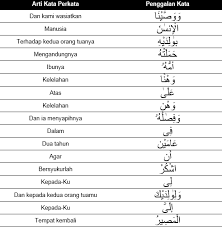 Arti Kata Perkata Penggalan Kata
Dan kami wasiatkan وَوَصَّيْنَا
Manusia الْإِنْسٰنَ
Terhadap kedua orang tuanya بِوٰلِدَيْهِ
Mengandungnya حَمَلَتْهُ
Ibunya أُمُّهُ
Kelelahan وَهْنًا
Atas عَلٰى
Kelelahan وَهْنٍ
Dan ia menyapihnya وَفِصٰلُهُ
Dalam فِى
Dua tahun عَامَيْنِ
Agar أَنِ
Bersyukurlah اشْكُرْ
Kepada-Ku لِى
Dan kepada kedua orang tuamu وَلِوٰلِدَيْكَ
Kepada-Ku إِلَىَّ
Tempat kembali الْمَصِيرُ